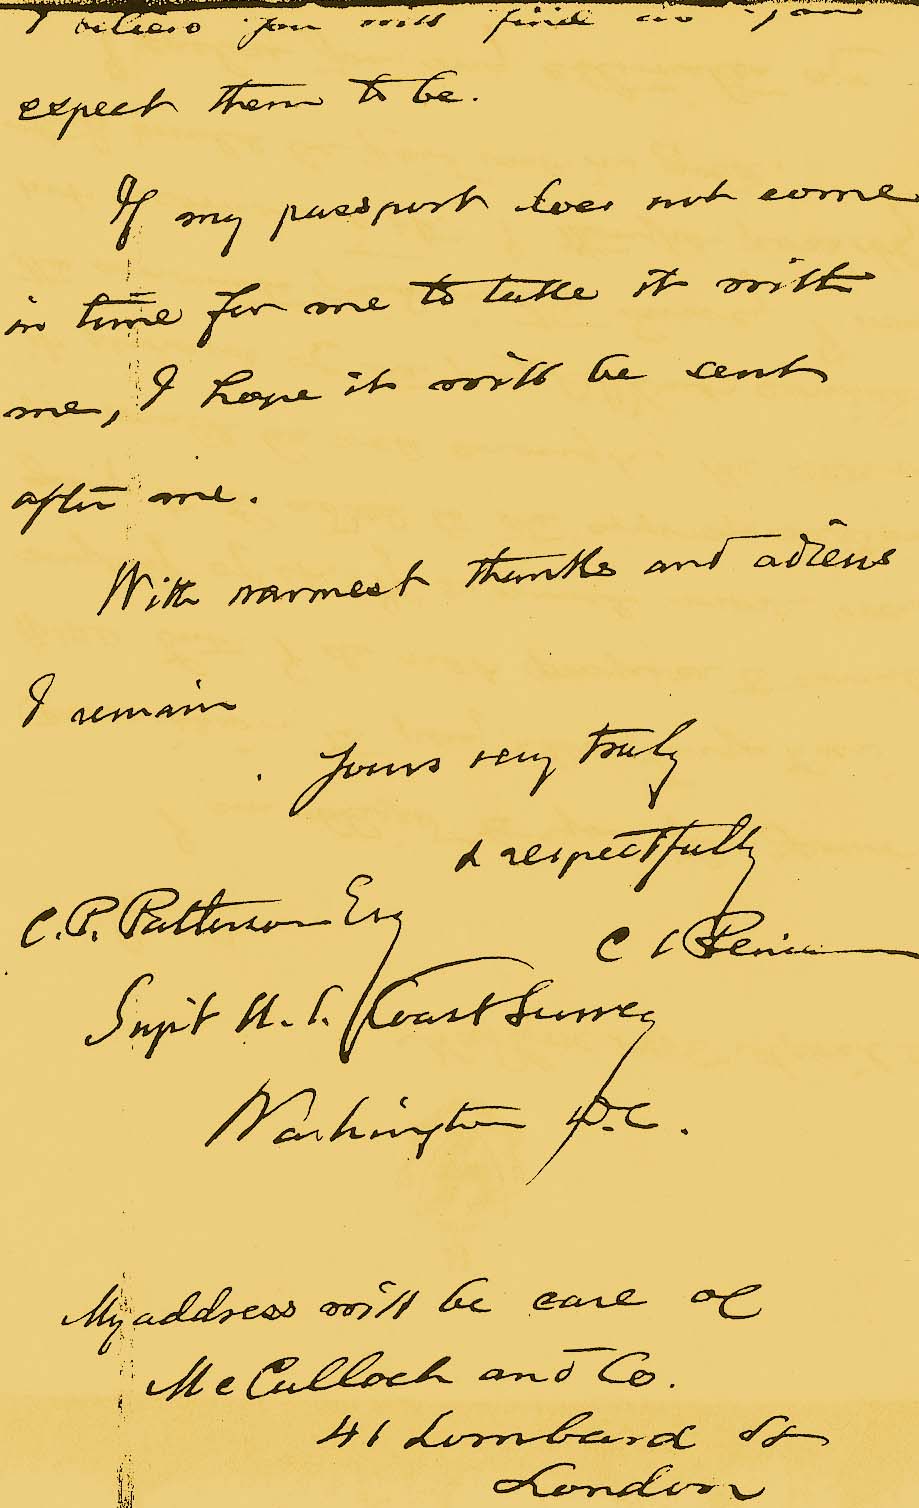 I believe you will find as you
expect them to be.
If my passport does not come
in time for me to take it with
me, I hope it will be sent
after me.
With warmest thanks and adieus
I remain
Yours very truly
& respectfully
C. P. Patterson Esq
C S Peirce
Supt U. S. Coast Survey
Washington D.C.
My address will be care of
McCulloch and Co.
41 Lombard St
London